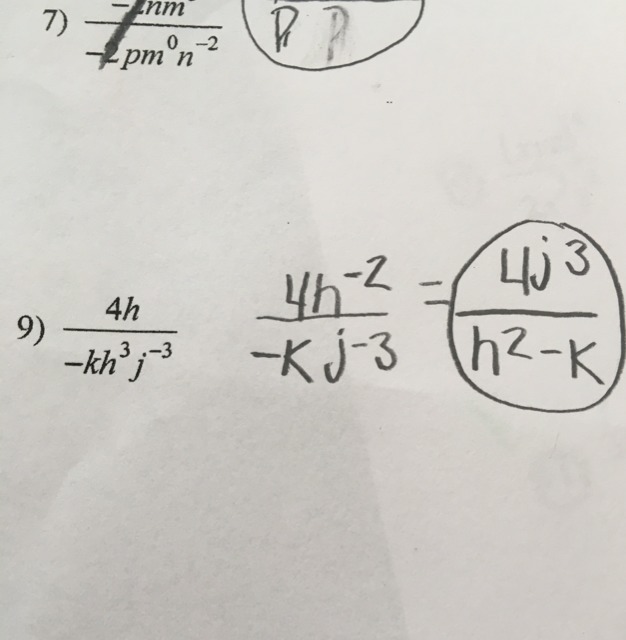 7) nm
-2pm⁰n⁻² p
9) 4h / -kh³j⁻³ 4h⁻² / -kj⁻³ = 4j³ / h²-k